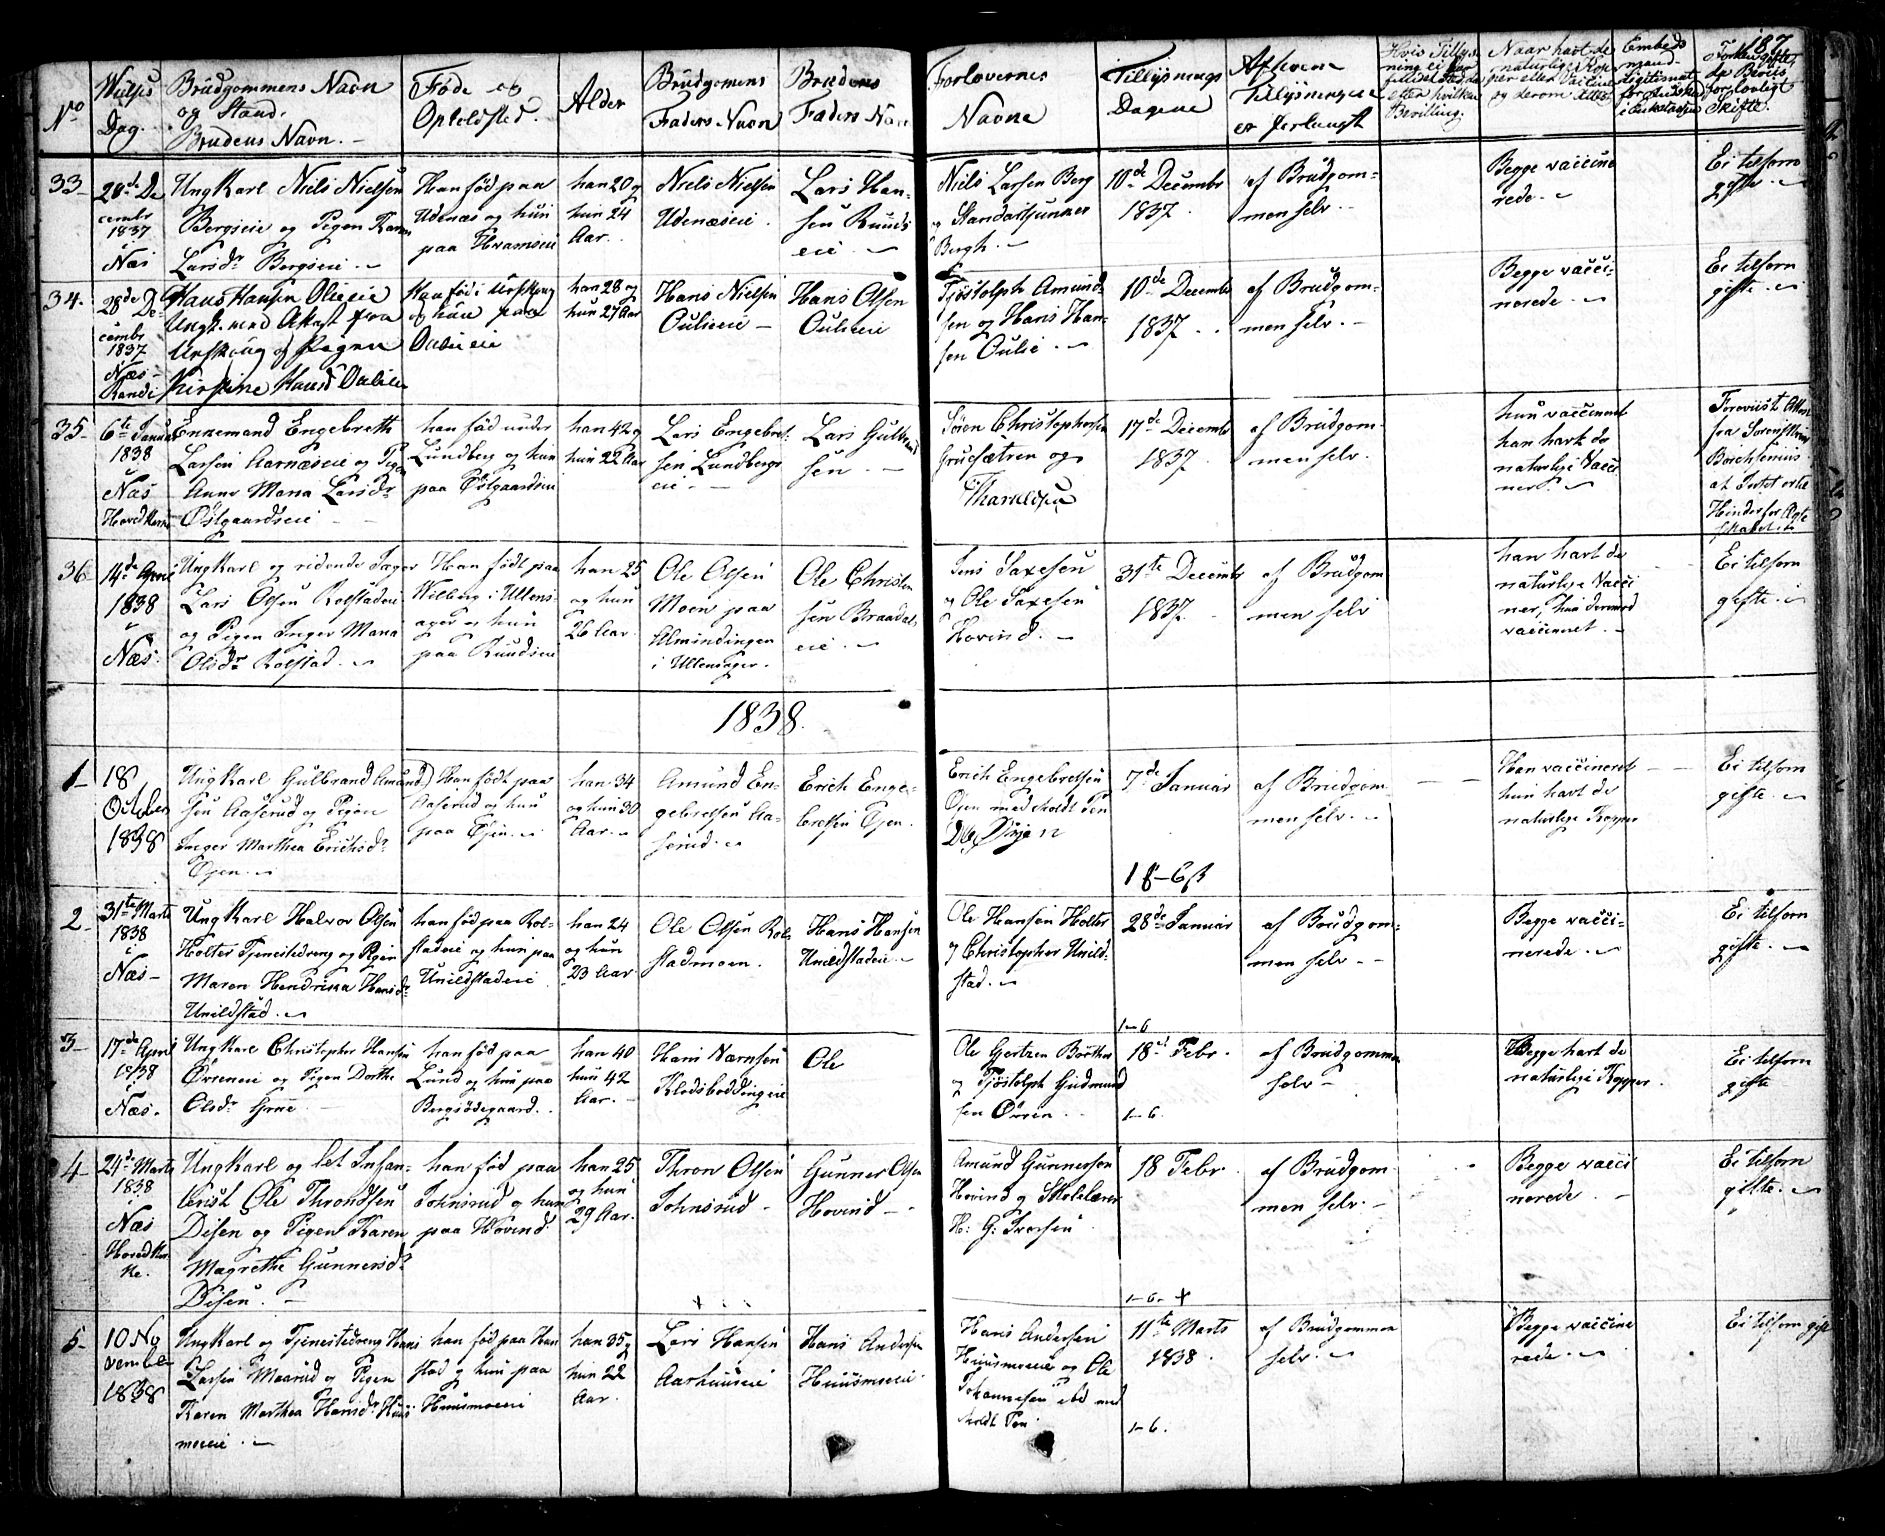 187
No
Vielses Dag.
Brudgommens Navn
og Stand.
Brudens Navn. –
Føde og
Opholdsted.
Alder
Brudgomens
Faders Navn
Brudens
Faders Navn
Forlovernes
Navne
Tillysnings
Dagene
Af hvem
Tillysningen
er forlangt
Hvis Tillys-
ning ei har
fundet sted, da
efter hvilken
Bevilling.
Naar havt de
naturlige Kop-
per eller Vaccine
og derom Attest
33–
28de De
cembr
1837
Næs
Ung Karl Niels Nielsen
Bergseie og Pigen Karen
Larsdr Bergseie. –
Han fød paa
Udenæs og hun
paa Hvamseie
han 20 og
hun 24
Aar.
Niels Nielsen
Udenæseie
Lars Han-
sen Ruuds
eie. –
Niels Larsen Berg
og Standartjunker
Bergh. –
10de Decembr
1837.
af Brudgom-
men selv. –
Begge vaccine
rede. –
Ei tilforn
gifte. –
34.
28de De-
cembr
1837
Næs –
Hans Hansen Oulieeie
Ungk. med Attest fra
Urskoug og Pigen
Kirstine Hansd Oulieeie
Han fød i Urskoug
og hun paa
Oulieeie
han 28 og
hun 27 Aar
Hans Nielsen
Oulieeie –
Hans Olsen
Oulieeie
Tjøstolph Amund-
sen og Hans Han-
sen Oulie. –
10de Decembr
1837.
af Brudgom-
men selv. –
Begge vacci-
nerede. –
Ei tilforn
gifte. –
35–
6te Januar
1838
Næs
Hovedkirke
Ennemand Engebreth
Larsen Aarnæseie og Pigen
Anne Maria Larsdr
Østgaardseie –
han fød under
Lundberg og hun
paa Østgaardseie
han 42 og
hun 22 Aar
Lars Engebret-
sen Lundbergs
eie. –
Lars Gulbrand
sen. –
Søren Christophersen
Gruesætren og
Tharaldsen
17de Decembr
1837.
af Brudgom
men selv.
hun vaccineret
han havt de
naturlige Vacci
ner. –
Foreviist Attest
fra Sorenskriver
Borchsenius
at Intet er til
Hinder for Ægte
skabet
36
14de April
1838
Næs.
Ung Karl og ridende Jæger
Lars Olsen Rolstadeie
og Pigen Inger Maria
Olsdr Rolstad. –
Han født paa
Wilberg i Ullens-
ager og hun
paa Ruudseie
han 25
og hun
26 Aar.
Ole Olsen
Moen paa
Almindingen
i Ullensager.
Ole Christen
sen Braadal-
eie. –
Jens Saxesen
og Ole Saxesen
Hovind. –
31te Decembr
1837.
af Brudgom
men selv
han havt de
naturlige Vacci
ner, hun derimod
vaccineret. –
Ei tilforn
gifte. –
1838.
1–
18
October
1838
Ung Karl Gulbrand Amund
sen Aaserud og Pigen
Inger Marthea Erichsdr
Øjen. –
Han født paa
Aaserud og hun
paa Øjen. –
han 34
og hun 30
Aar. –
Amund En-
gebretsen Aa-
serud. –
Erich Enge-
bretsen Øjen.
Erich Engebretsen
Øjen med holdt Pen
Ole Øyen
7de Januar
1 β–6 β
af Brudgom
men selv. –
Han vaccineret
hun havt de
naturlige Kopper
Ei tilforn
gifte. –
2–
31te Marts
1838
i
Næs –
Ung Karl Halvor Olsen
Holter Tjenestedreng og Pigen
Maren Hendrikka Hansdr
Unildstad. –
han fød paa Rol-
stadeie og hun paa
Unildstadeie
han 24
og hun
23 Aar
Ole Olsen Rol-
stadmoen.
Hans Hansen
Unildstadeie. –
Ole Hansen Holter
og Christopher Unild-
stad. –
28de Januar
1–6
af Brudgom-
men selv. –
Begge vacci-
nerede. –
Ei tilforn
gifte. –
3–
17de April
1838
i
Næs.
Ung Karl Christopher Hansen
Ørseneie og Pigen Dorthe
Olsdr
han fød paa
Lund og hun paa
Bergsødegaard.
han 40
hun 42
Aar. –
Hans Nærnsen
Klodsboddingeie
Ole
Ole Gertzen Børther
og Tjøstolph Gudmund
sen Ørsen
18de Febr.
1–6.
af Brudgommen
selv –
Begge havt de
naturlige Kopper.
Ei tilforn
gifte. –
4–
24de Marts
1838
i
Næs
Hovedkir-
ke.
Ung Karl og let Infan-
terist Ole Throndsen
Disen og Pigen Karen
Magrethe Gunnersdr
Disen. –
han fød paa
Johnsrud og hun
paa Hovind
han 25
og hun
29 Aar.
Thron Olsen
Johnsrud –
Gunner Olsen
Hovind –
Amund Gunnersen
Hovind og Skolelærer
H: G: Iversen
18 Febr.
1–6– +
af Brudgom
men selv. –
Begge vacci
nerede. –
Ei tilforn
gifte. –
5–
10 No
vember
1838
Ung Karl og Tjenestedreng Hans
Larsen Maarud og Pigen
Karen Marthea Hansdr Huus
moeeie. –
han fød paa Huus
stad og hun paa
Huusmoeeie
han 35 og
hun 22
Aar.
Lars Hansen
Aarhuuseie
Hans Andersen
Huusmoeeie
Hans Andersen
Huusmoeeie og Ole
Johannesen ibd med
holdt Pen
11te Marts
1838.
1–6.
af Brudgommen
selv. –
Begge vaccine
rede. –
Ei tilforn gifte